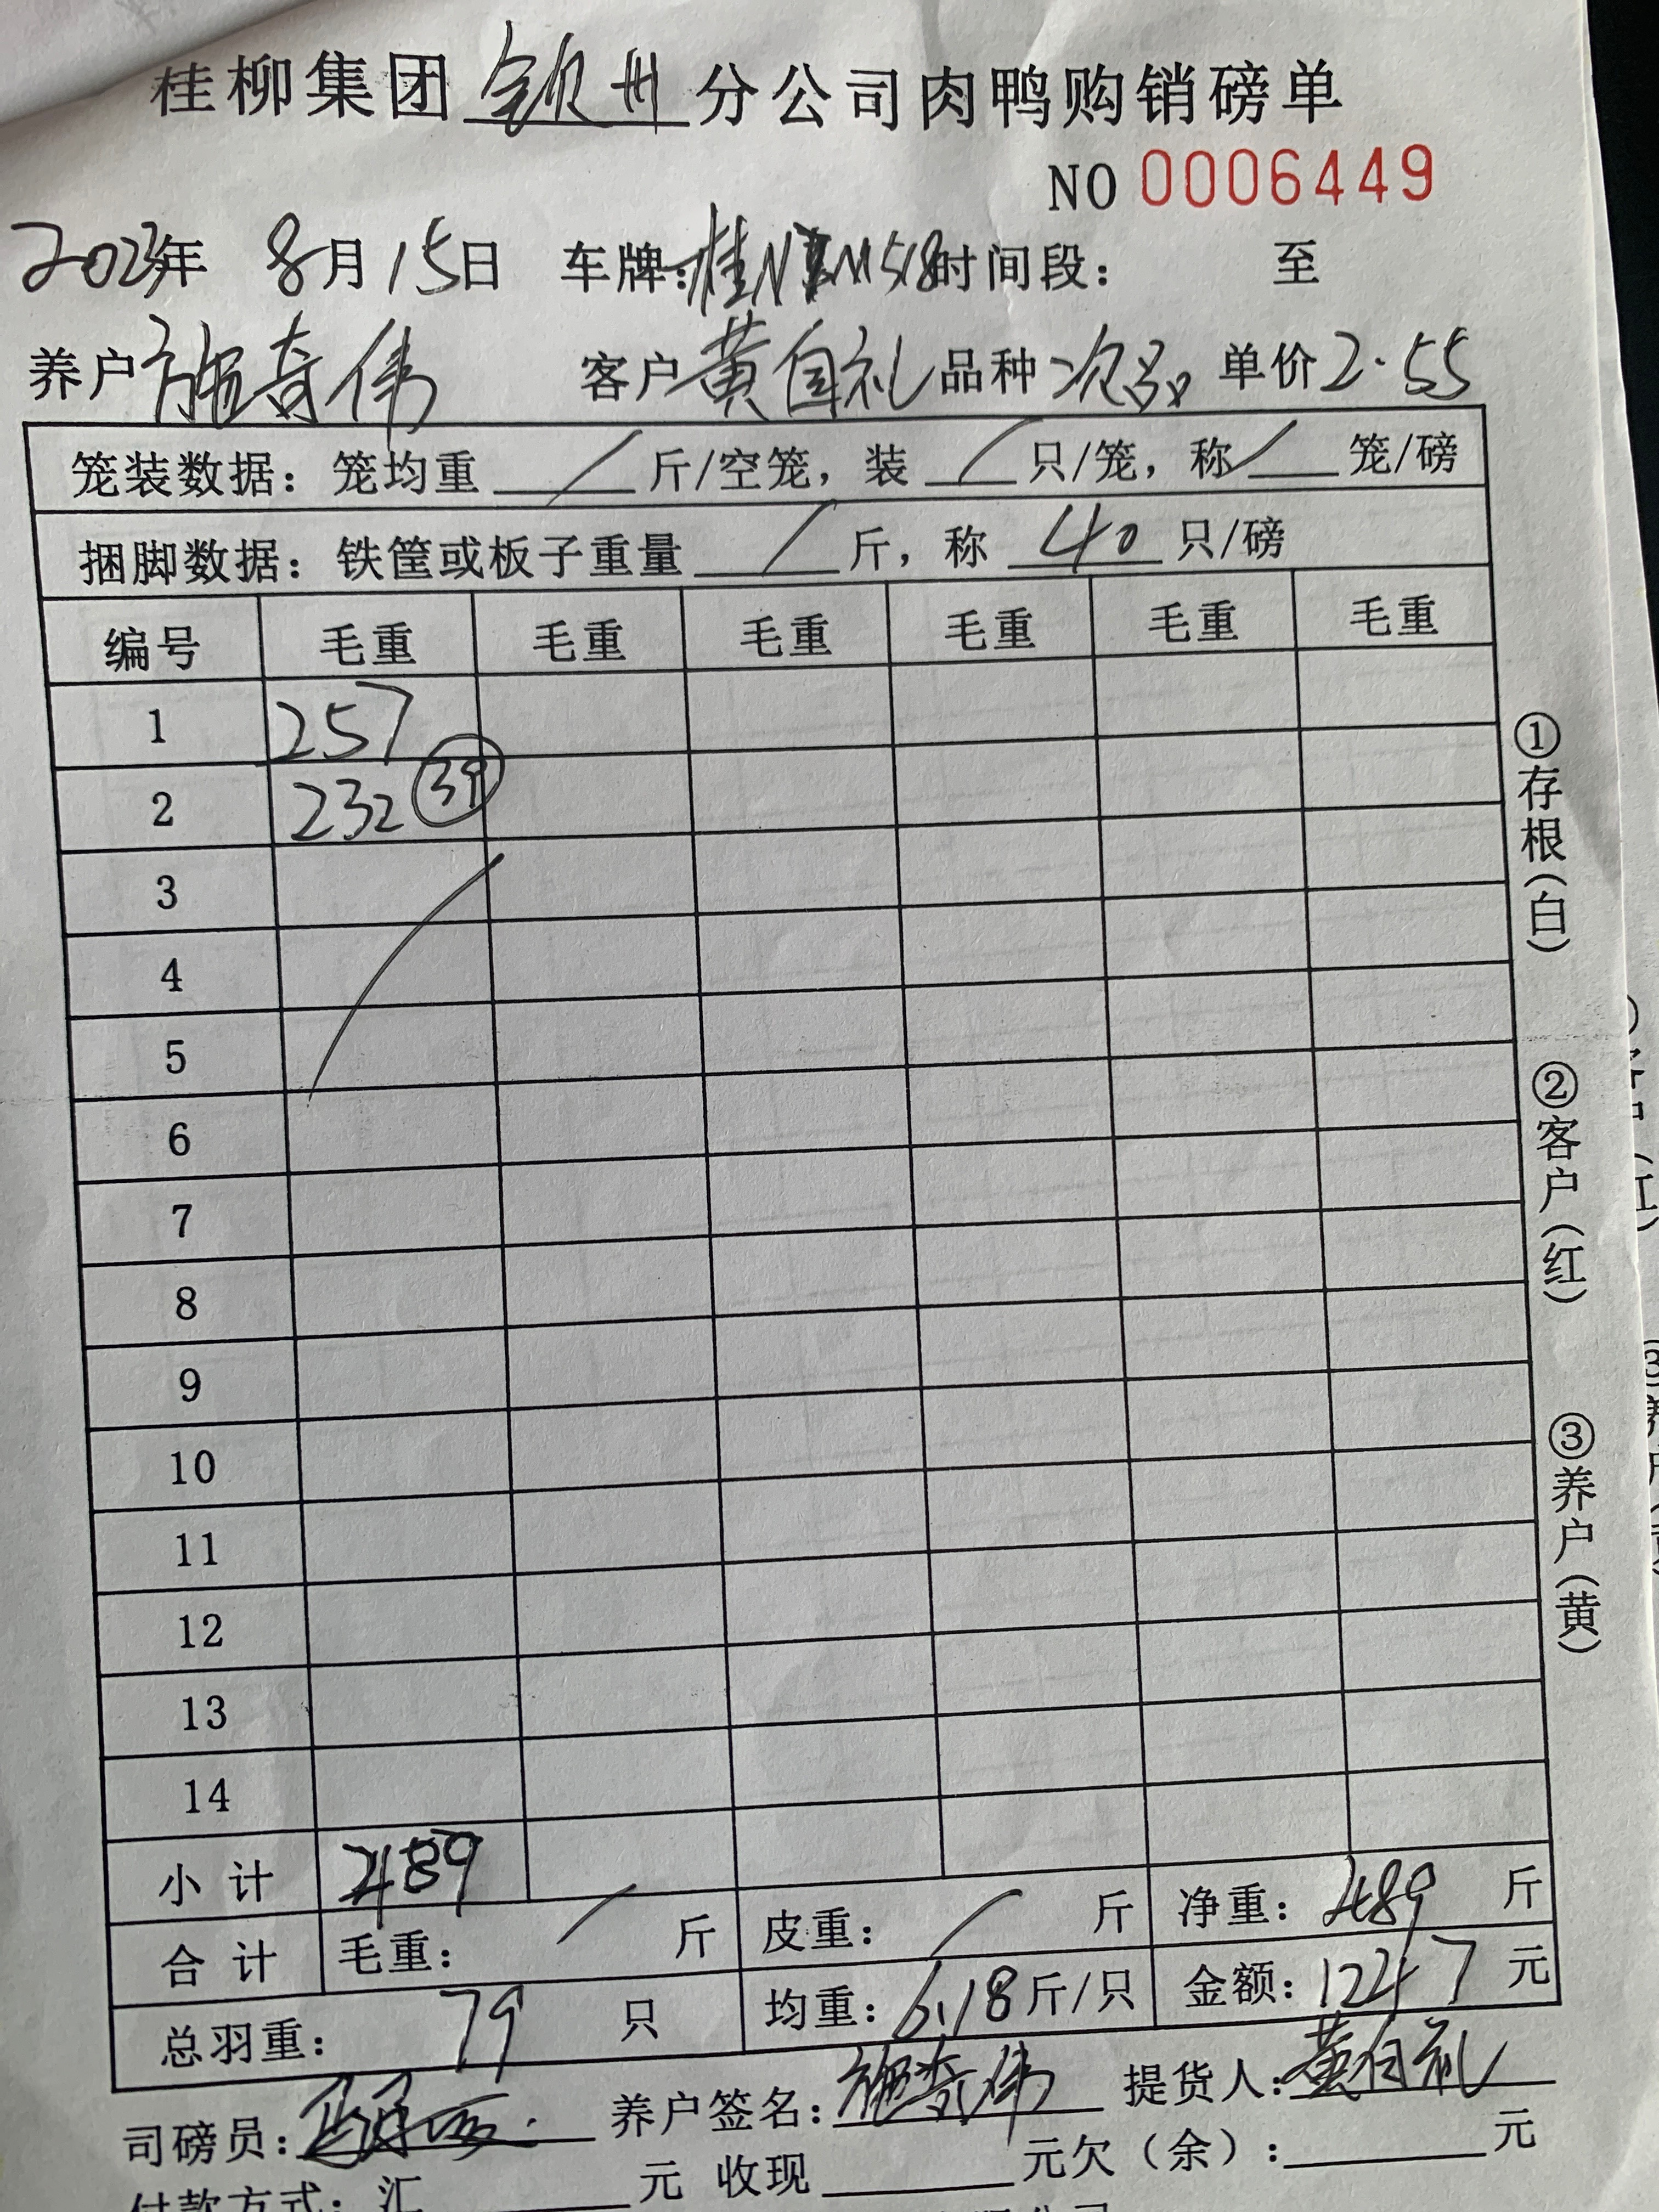 桂柳集团钦州分公司肉鸭购销磅单
NO 0006449
2023年 8月15日 车牌:桂N M518时间段: 至
养户施奇伟 客户黄自礼品种次品 单价2.55
笼装数据:笼均重 / 斤/空笼,装 / 只/笼,称 / 笼/磅
捆脚数据:铁筐或板子重量 / 斤,称 40 只/磅
编号 毛重 毛重 毛重 毛重 毛重 毛重
1 257
2 232 39
3
4
5
6
7
8
9
10
11
12
13
14
小计 489
合计 毛重: / 斤 皮重: / 斤 净重:489 斤
总羽重: 79 只 均重:6.18斤/只 金额:1247 元
司磅员: 养户签名:施奇伟 提货人:黄自礼
付款方式:汇 元 收现 元欠(余): 元
①存根(白)
②客户(红)
③养户(黄)